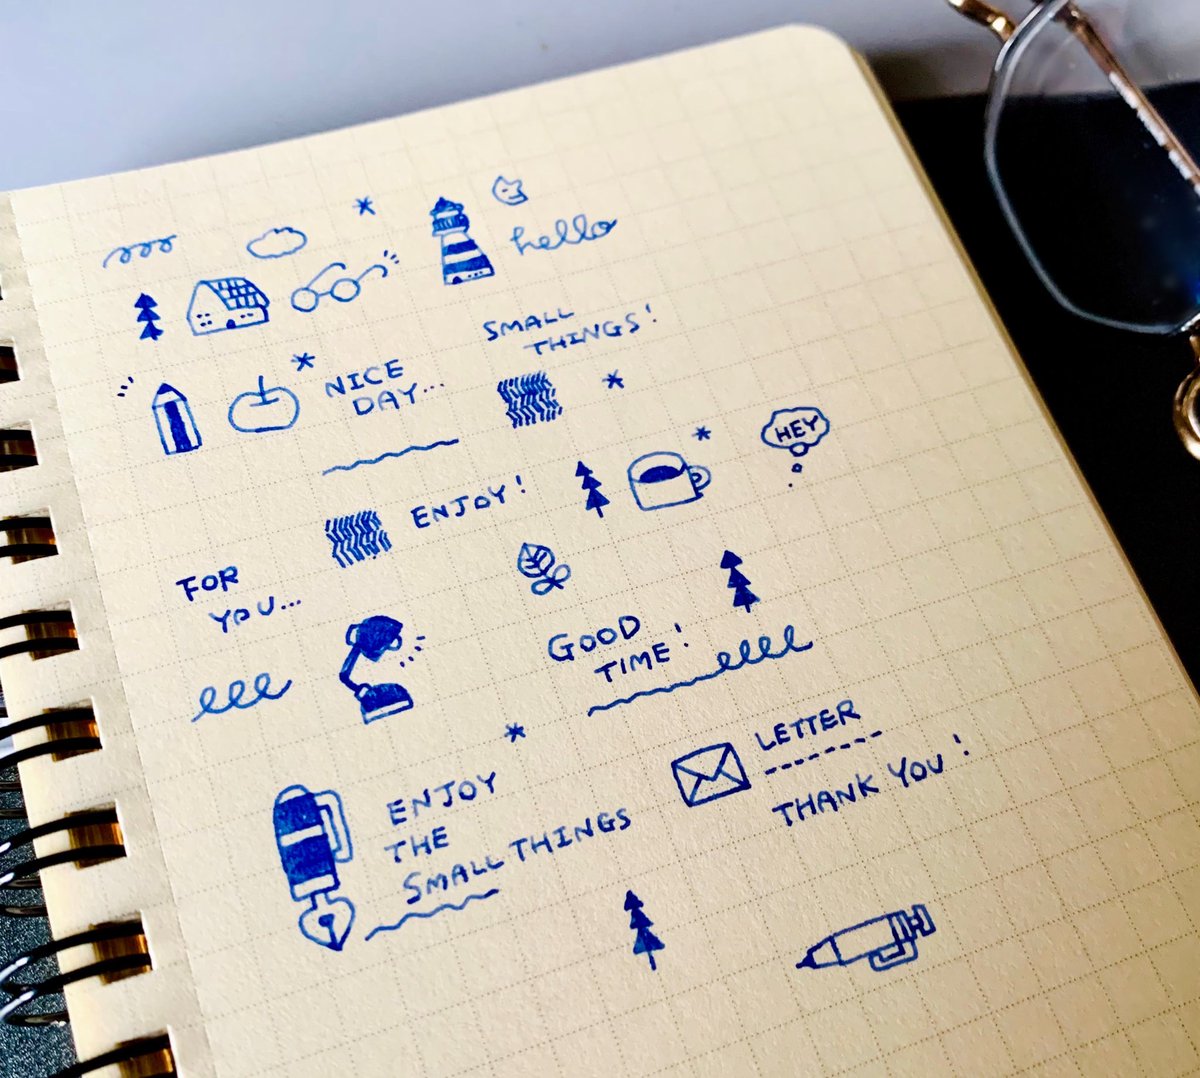 hello
SMALL
THINGS!
NICE
DAY...
HEY
ENJOY!
FOR
YOU...
GOOD
TIME!
LETTER
THANK YOU!
ENJOY
THE
SMALL THINGS